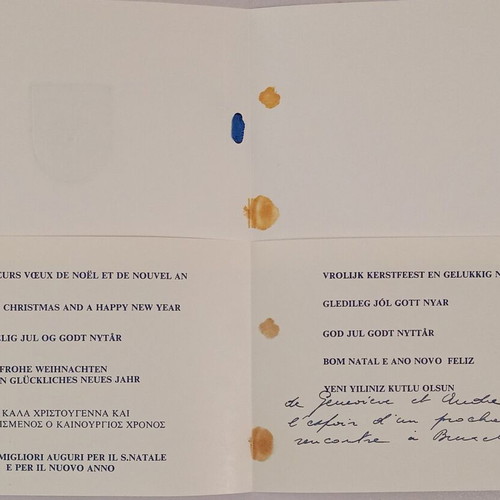 EURS VŒUX DE NOËL ET DE NOUVEL AN
CHRISTMAS AND A HAPPY NEW YEAR
LIG JUL OG GODT NYTÅR
FROHE WEIHNACHTEN
N GLÜCKLICHES NEUES JAHR
ΚΑΛΑ ΧΡΙΣΤΟΥΓΕΝΝΑ ΚΑΙ
ΙΣΜΕΝΟΣ Ο ΚΑΙΝΟΥΡΓΙΟΣ ΧΡΟΝΟΣ
MIGLIORI AUGURI PER IL S.NATALE
E PER IL NUOVO ANNO
VROLIJK KERSTFEEST EN GELUKKIG N
GLEDILEG JÓL GOTT NYAR
GOD JUL GODT NYTTÅR
BOM NATAL E ANO NOVO FELIZ
YENI YILINIZ KUTLU OLSUN
de Geneviève et Andre
l'espoir d'un proche
rencontre à Bruxel